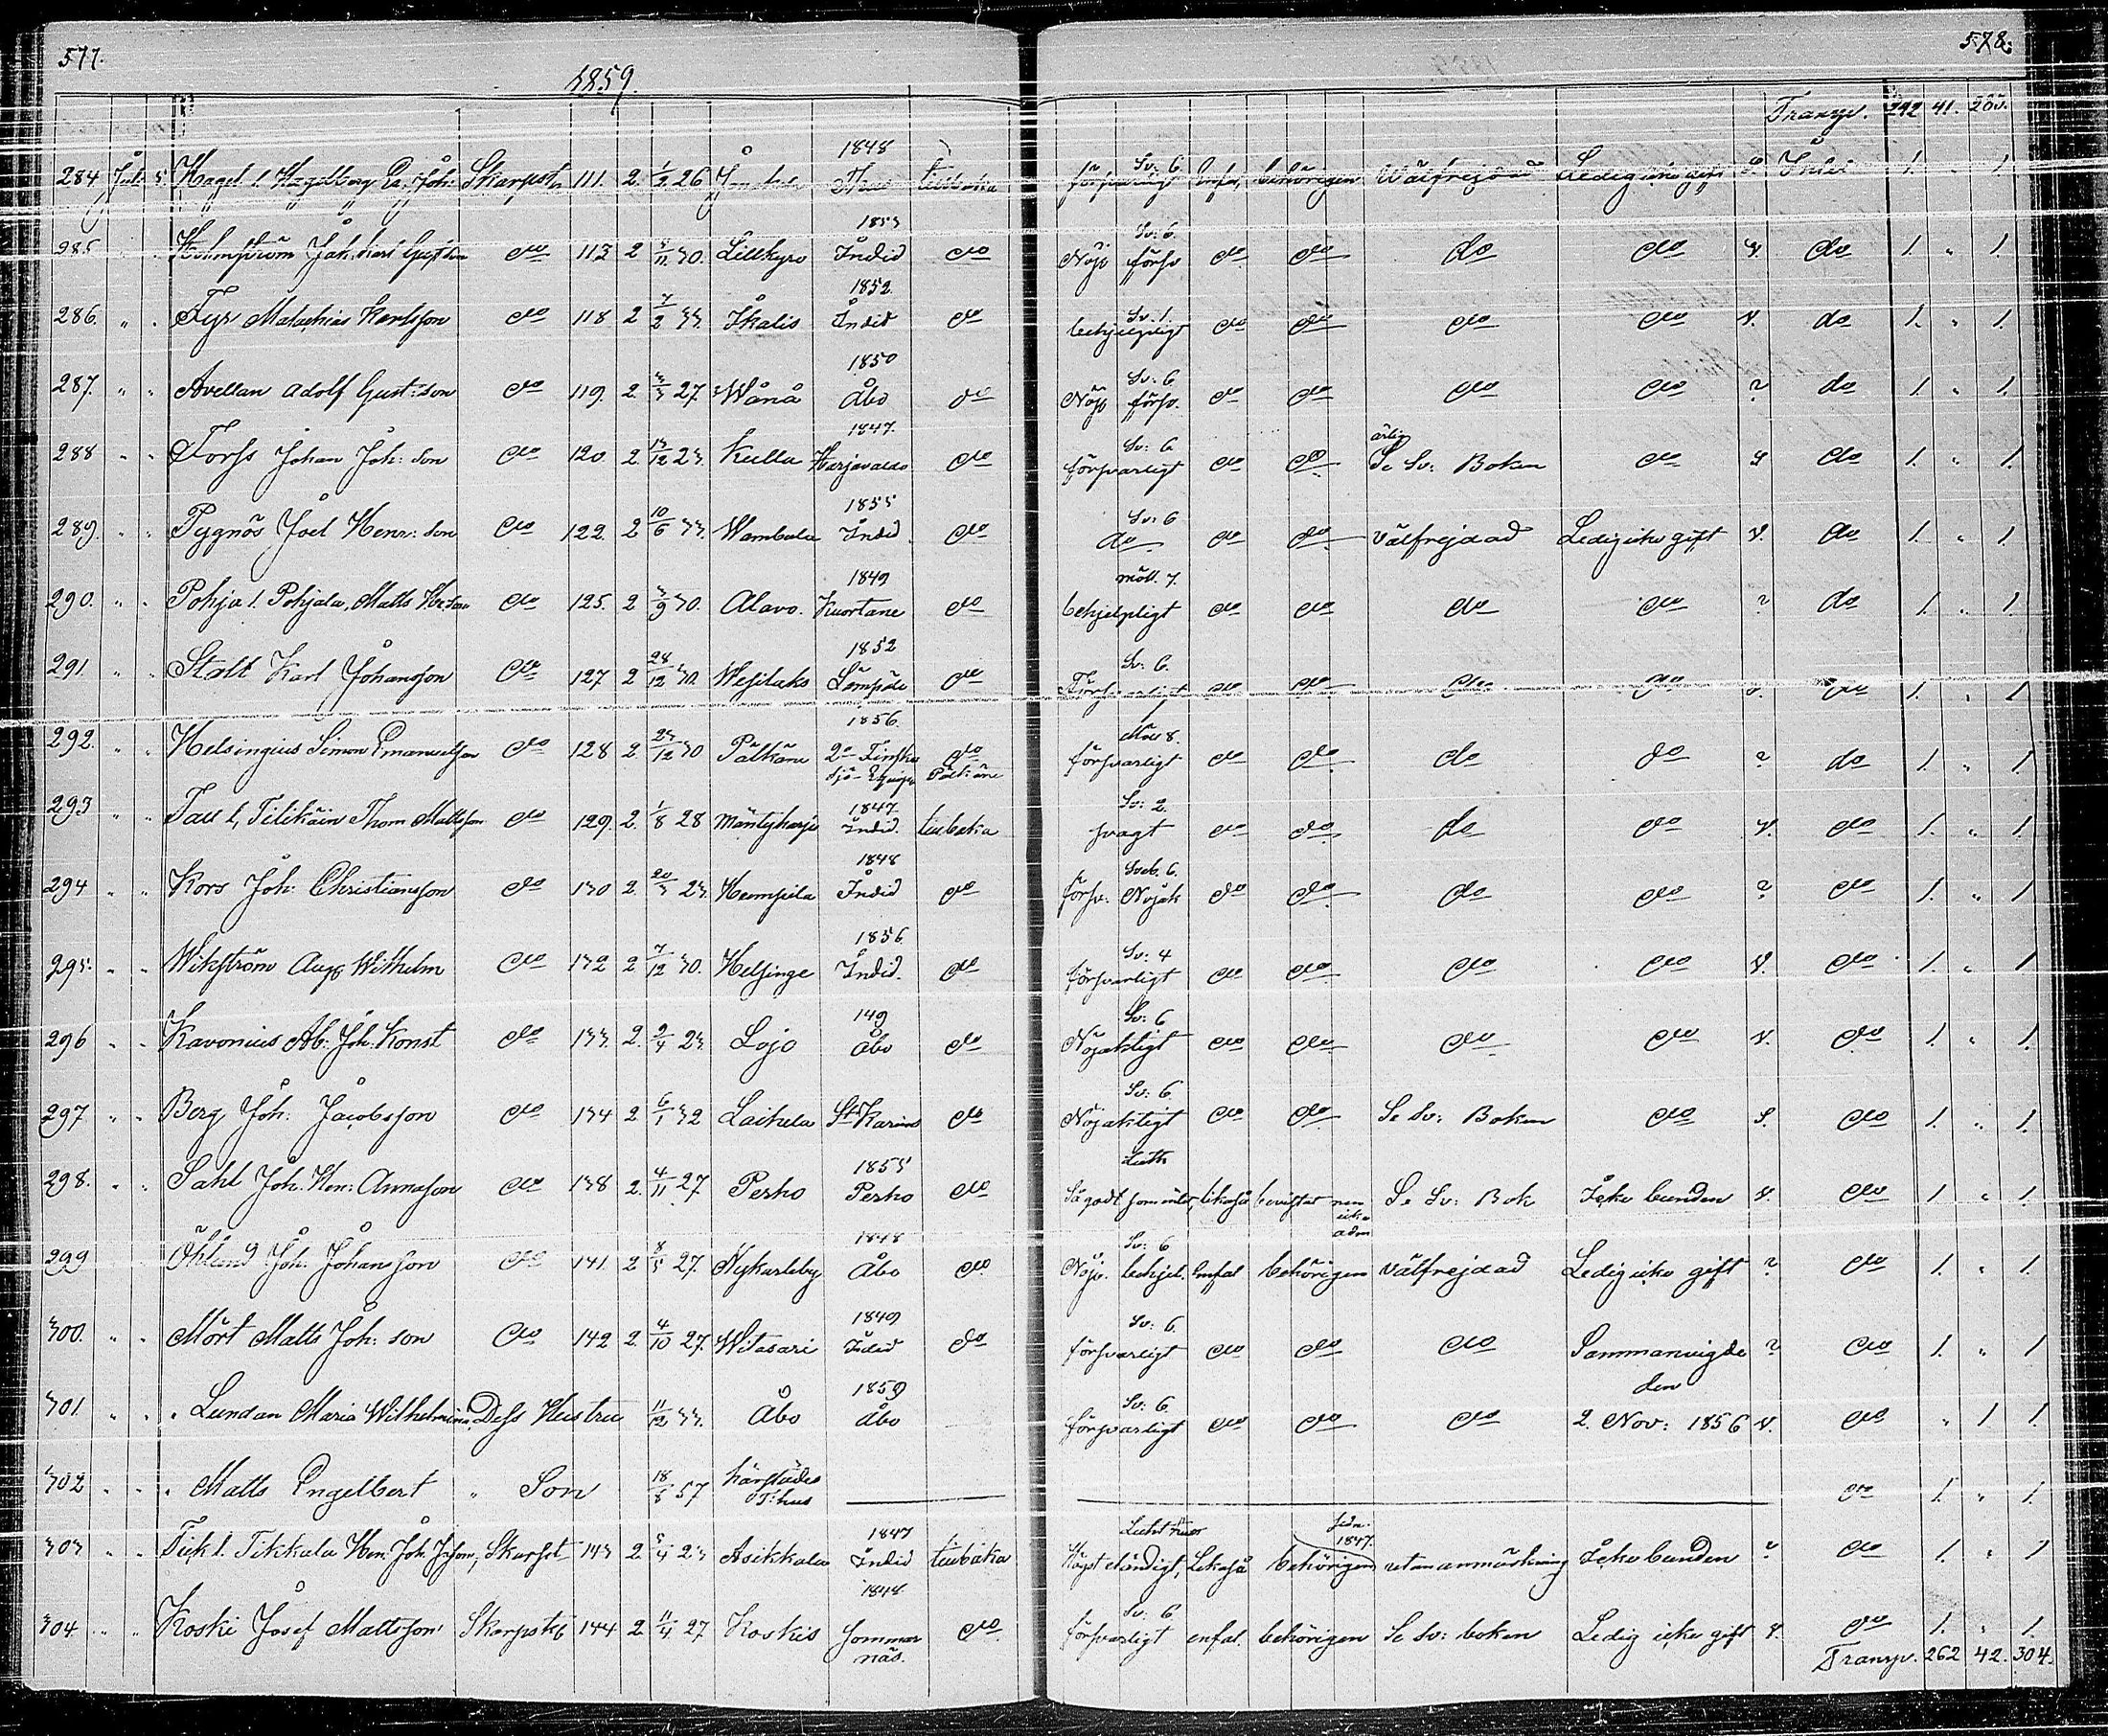 577.
578.
1859.
Transp. 242 41. 283.
284 Juli 5 Hagel l. Hagelberg Skarpsk. 111. 2. 1/2 26 1848 tillbaka Sv: 6. försvarligt enfal. behörigen välfrejdad Ledig icke gift 1. " 1.
285. " " Holmström Joh. Karl Gust:son do 113 2 /11 30. Lillkyro 1853 Indid do Sv: 6. Nöj. försv. do do do do v. do 1. " 1.
286. " " Fyr Malachias Karlsson do 118 2 7/2 33. Ikalis 1852. Indid do Sv. 1. behjelpligt do do do do v. do 1. " 1.
287. " " Avellan Adolf Gust:son do 119. 2. 27. Wånå 1850 Åbo do Sv: 6 Nöj. försv. do do do do ? do 1. " 1.
288 " " Forss Johan Joh:son do 120. 2. 13/12 23. Kulla 1847. Harjavalda do Sv: 6 försvarligt do do ärlig Se Sv: Boken do S do 1. " 1.
289. " " Pygnös Joel Henr:son do 122. 2 10/6 33. Wambula 1855 Indid. do Sv: 6 do do do välfrejdad Ledig icke gift v. do 1. " 1.
290. " " Pohja l. Pohjala, Matts do 125. 2 3/9 30. Alavo. 1849 Kuortane do möll. 7. behjelpligt do do do do ? do 1. " 1.
291. " " Stalt Karl Johansson do 127 2 28/12 30. Wesilaks 1852 Lempäle do Sv: 6. Försvarligt do do do do do 1. " 1
292. " " Helsingius Simon Emanuelsson do 128 2. 23/12 30 Pälkäne 1856. 2a Finska Sjö-Equip. do Pälkäne 8. försvarligt do do do do ? do 1. " 1
293 " " Tau l, Tilikäin Thom Mattsson do 129. 2. 1/8 28 Mäntyharju 1847 Indid. tillbaka Sv: 2. svagt do do do do v. do 1. " 1
294 " " Kors Joh: Christiansson do 130 2. 20/3 23. Humpila 1848 Indid do Sveb. 6. försv. Nöjak do do do do ? do 1. " 1.
295. " " Wikström Aug. Wilhelm do 132 2 7/12 30. Helsinge 1856. Indid. do Sv: 4 försvarligt do do do do v. do 1. " 1
296 " " Kavonius Ab: Joh: Konst do 133. 2. 2/4 23. Lojo 149 Åbo do Sv: 6 Nöjaktigt do do do do v. do 1. " 1.
297 " " Berg Joh: Jacobsson do 134 2 6/1 32 Laihela St Karins do Sv: 6. Nöjaktigt do do Se Sv: Boken do S. do 1. " 1.
298. " " Sahl Joh: Hen: Annason do 138 2. 4/11 27. Perho 1855 Perho do Luth Så godt som intet, likaså bevistat men icke adm Se Sv: Bok Icke bunden v. do 1. " 1
299 " " Öhlund Joh: Johansson do 141 2 8/5 27. Nykarleby 1848 Åbo do Sv: 6 Nöj. behjel. enfal behörigen välfrejdad Ledig icke gift ? do 1. " 1
300. " " Mört Matts Joh:son do 142 2. 4/10 27. Witasari 1849 Indid do Sv: 6. försvarligt do do do Sammanvigde ? do 1. " 1
den
301. " " " Lundan Maria Wilhelmina, Dess Hustru 11/12 33. Åbo 1859 Åbo Sv: 6. försvarligt do do do 2. Nov: 1856 v. do " 1 1.
302 " " " Matts Engelbert " Son 18/8 57 härstädes do 1. " 1.
303 " " Tick l. Tikkala Hen: Joh: Skarpsk 143 2. 5/4 23 Asikkala 1847 Indid tillbaka Högst eländigt, Likaså behörigen sedn. 1847. utan anmärkning Icke bunden ? do 1. " 1
304. " " Koski Josef Mattsson Skarpsk 144 2 11/4 27 Koskis 1848. Jommar näs. do Sv: 6. försvarligt enfal. behörigen Se Sv: boken Ledig icke gift v. do 1. " 1.
Transp. 262 42. 304.